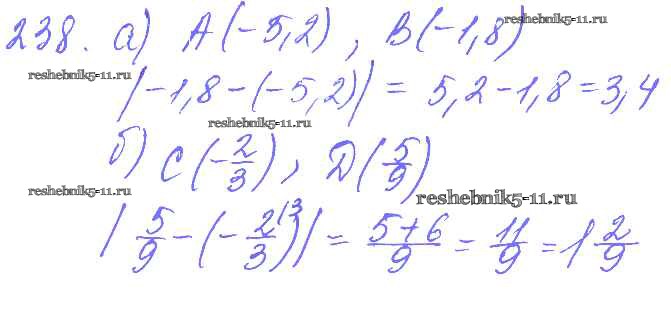 238. а) A(-5,2), B(-1,8)
reshebnik5-11.ru
reshebnik5-11.ru
|-1,8-(-5,2)| = 5,2-1,8=3,4
reshebnik5-11.ru
б) C(-2/3), D(5/9)
reshebnik5-11.ru
reshebnik5-11.ru
|5/9-(-2/3 (3)| = 5+6/9 = 11/9 = 1 2/9